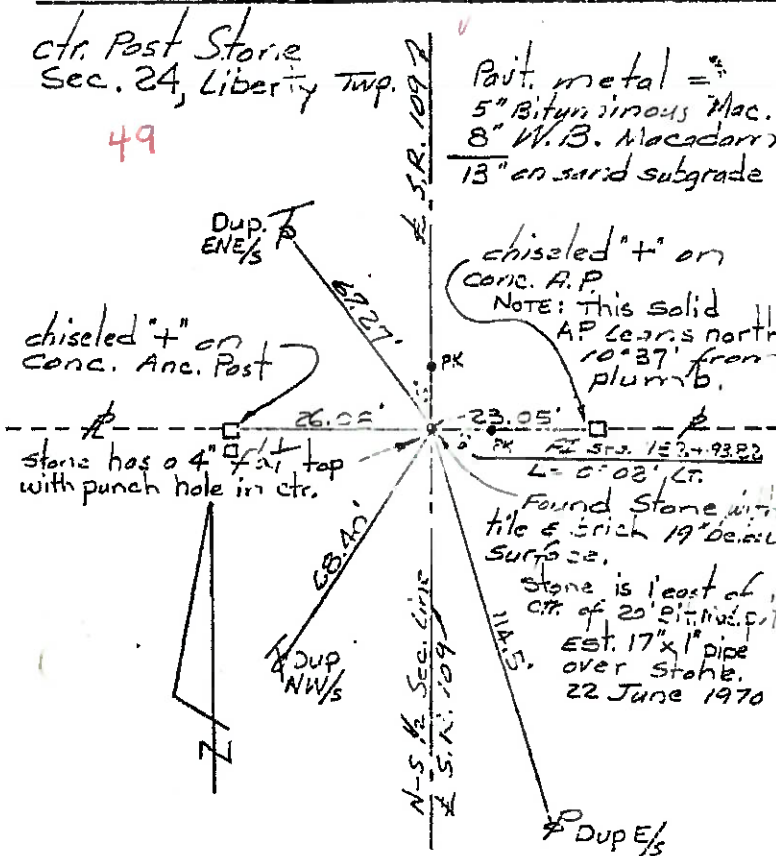 ctr. Post Stone
Sec. 24, Liberty Twp.
49
Pavt. metal =
5" Bituminous Mac.
8" W.B. Macadam
13" on sand subgrade
℄ S.R. 109
Dup.
ENE/s
67.27'
chiseled "+" on
Conc. A.P.
NOTE: This solid
AP Leans north
10°37' from
plumb.
chiseled "+" on
Conc. Anc. Post
PK
23.05'
PK
stone has a 4" flat top
with punch hole in ctr.
Lt.
Found Stone
tile & brick 19"
surface.
Stone is 1' east of
ctr. of 20'
Est. 17" x 1" pipe
over Stone.
22 June 1970
114.5'
Dup
NW/s
N-S ½ Sec. Line
℄ S.R. 109
Z
Dup E/s